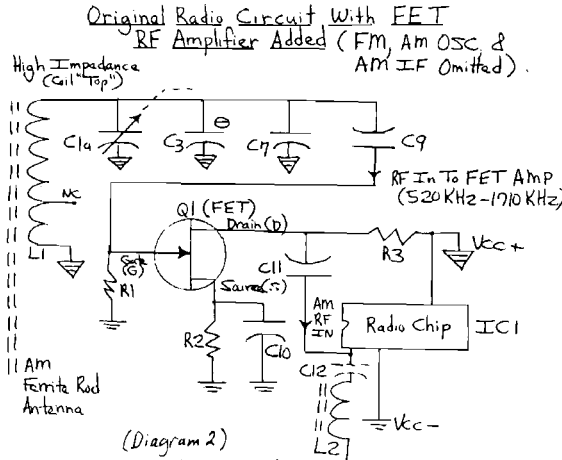 Original Radio Circuit With FET
RF Amplifier Added (FM, Am OSC, &
AM IF Omitted).
High Impedance
(Coil "Top")
C1a
C3
C7
C9
RF In To FET AMP
(520KHz-1710KHz)
NC
Q1 (FET)
Drain (D)
L1
Gate
(G)
Source(S)
C11
R3
Vcc+
R1
Am
RF
IN
Radio Chip
IC1
R2
C10
C12
Am
Ferrite Rod
Antenna
Vcc-
L2
(Diagram 2)